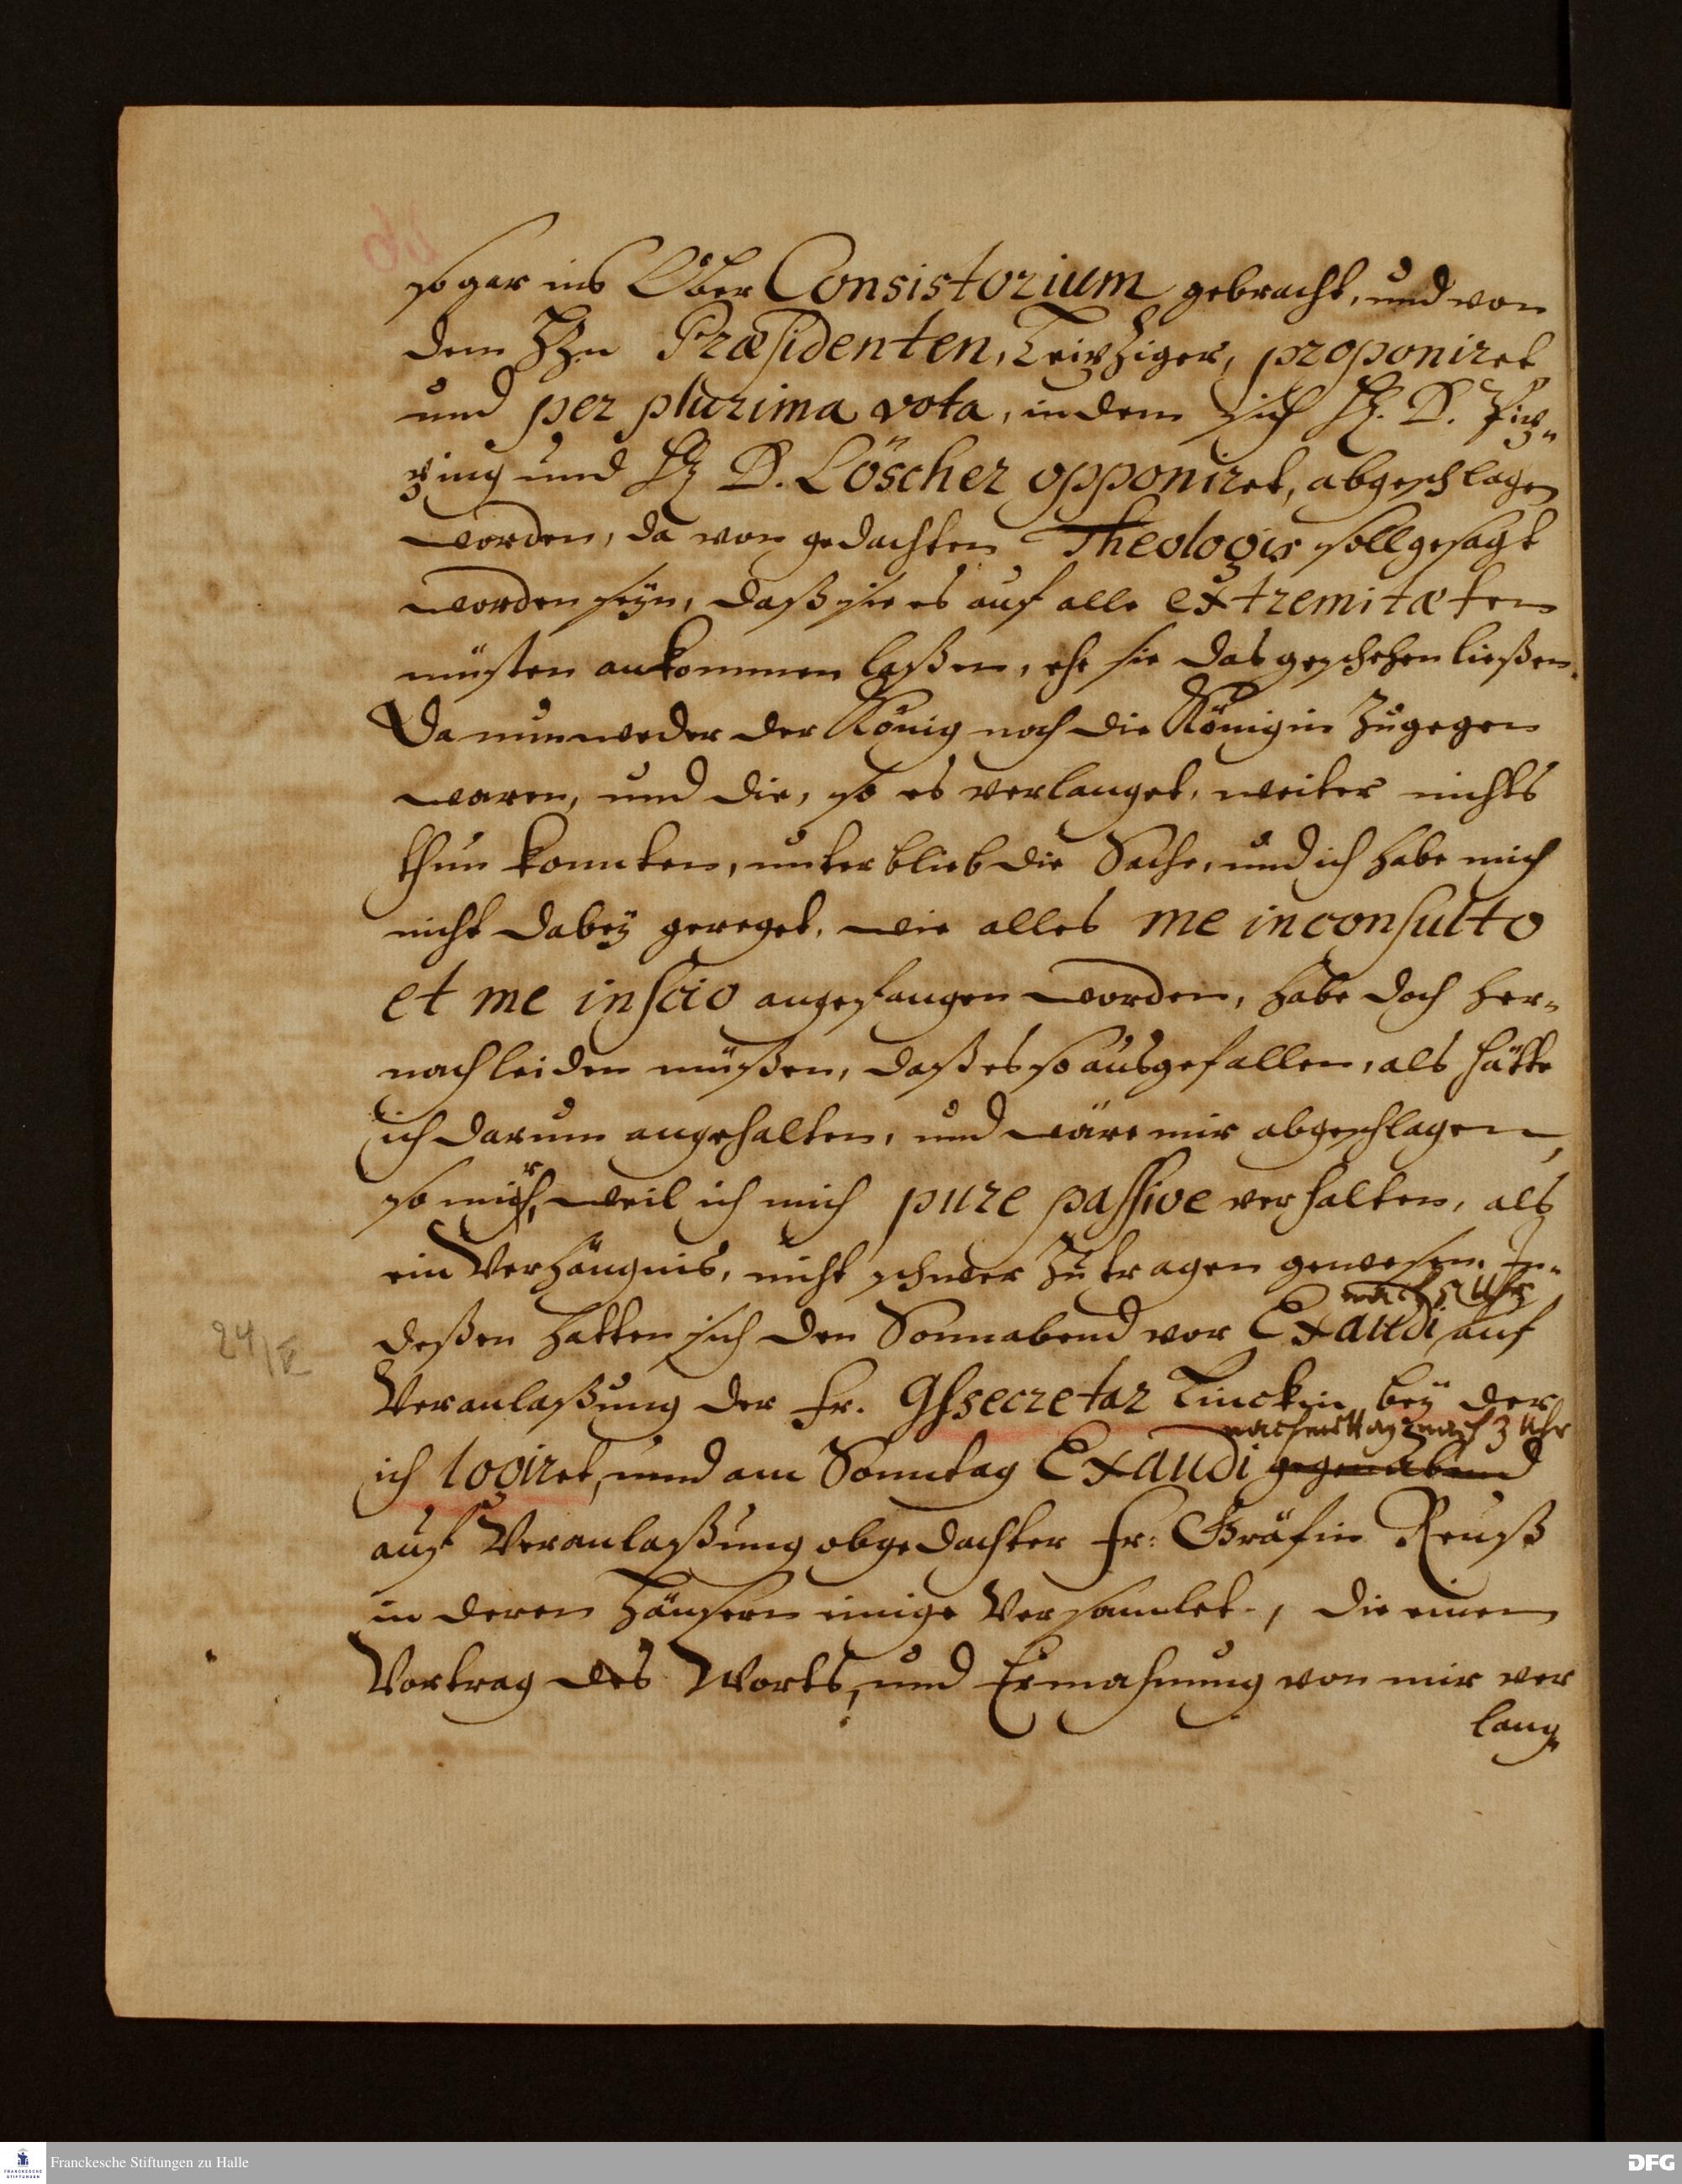 so gar ins Ober Consistorium gebracht, und von
dem Hhn Præsidenten, Leipziger, proponiret
und per plurima vota, indem sich H. D. Pip-
ping und H D. Löscher opponiret, abgeschlagen
worden, da von gedachten Theologis soll gesagt
worden seyn, daß sie es auf alle extremitæten
müsten ankommen laßen, ehe sie das geschehen ließen.
Da nun weder der König noch die Königin zugegen
waren, und die, so es verlanget, weiter nichts
thun konnten, unterblieb die Sache, und ich habe mich
nicht dabey gereget, wie alles me inconsulto
et me inscio angefangen worden, habe doch her-
nach leiden müßen, daß es so ausgefallen, als hätte
ich darum angehalten, und wäre mir abgeschlagen,
so mir, weil ich mich pure passive verhalten, als
ein Verhängnis, nicht schwer zu tragen gewesen. In-
nach 5 Uhr
deßen hatten sich den Sonnabend vor Exaudi auf
24/V
Veranlaßung der Fr. Ghsecretar Linckin, bey der
nachmittag nach 3 Uhr
ich logiret, und am Sonntag Exaudi gegen abend
auf Veranlaßung obgedachter Fr: Gräfin Reuß
in deren Häusern einige versamlet, die einen
Vortrag des Worts, und Ermahnung von mir ver
lang-
Franckesche Stiftungen zu Halle
DFG